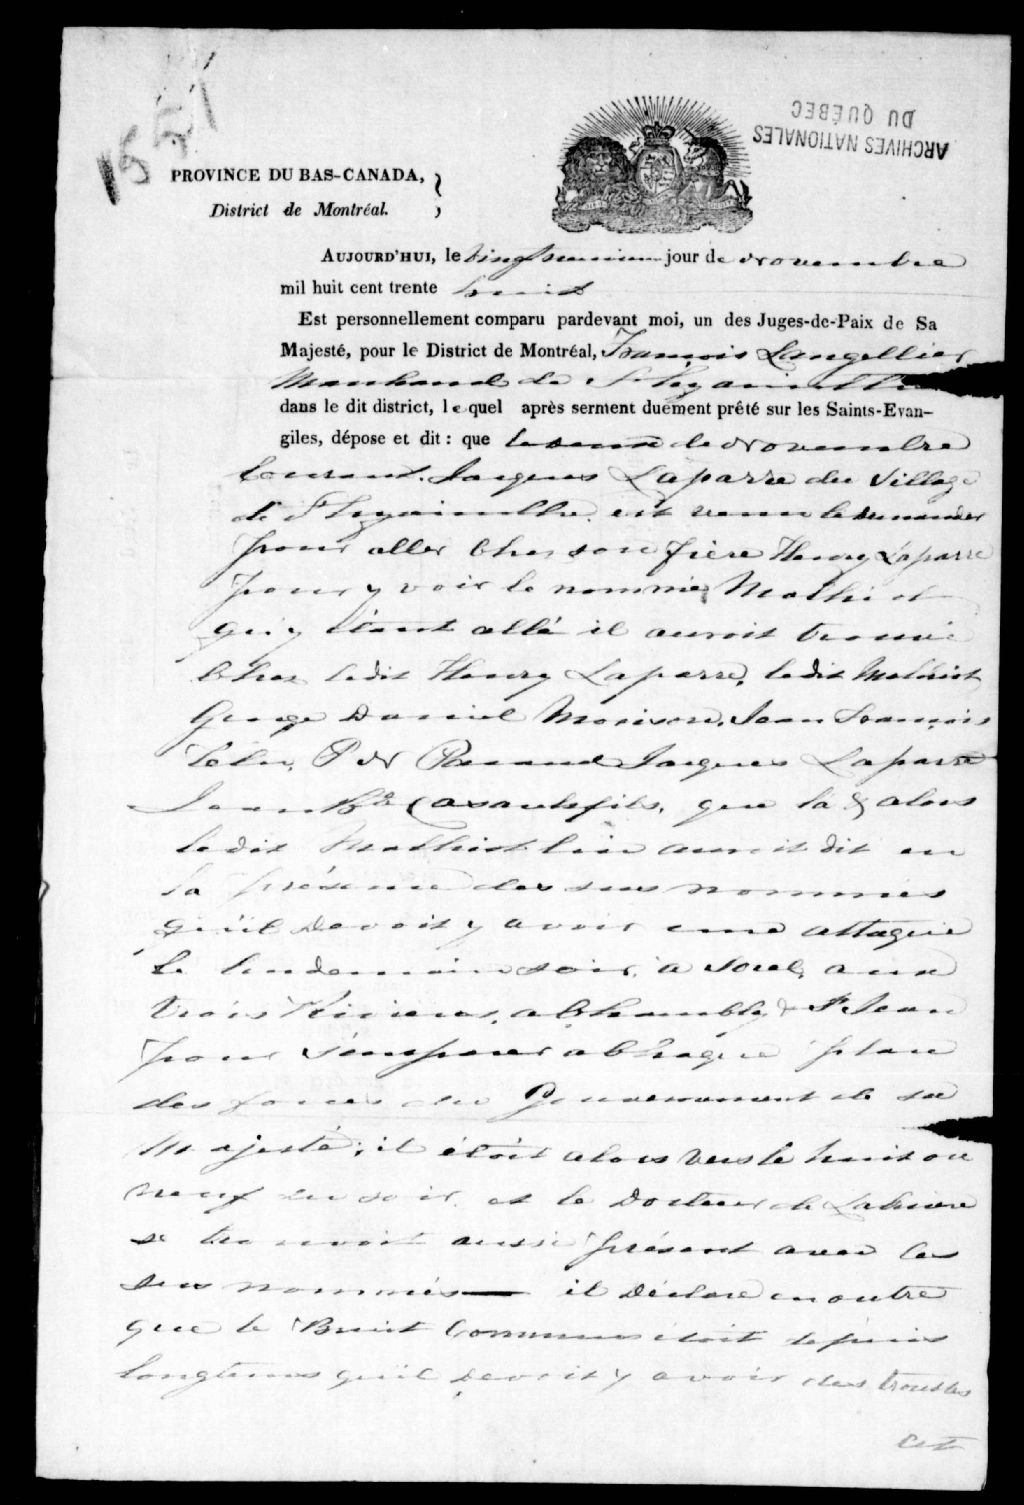 1551
ARCHIVES NATIONALES
DU QUÉBEC
PROVINCE DU BAS-CANADA,
District de Montréal.
AUJOURD'HUI, le vingt jour de Novembre
mil huit cent trente huit
Est personnellement comparu pardevant moi, un des Juges-de-Paix de Sa
Majesté, pour le District de Montréal, François Langellier
Marchand de St Hyacinthe
dans le dit district, lequel après serment duement prêté sur les Saints-Evan-
giles, dépose et dit : que le deux de Novembre
Courant. Jacques Laparre du Village
de St Hyacinthe. est venu le demander
pour aller chez son frère Henry Laparre
pour y voir le nommé Mathiot
qu'y étant allé il auroit trouvé
Chez ledit Henry Laparre, ledit Mathiot
George Daniel Morison, Jean François
Têtu, P Jacques Laparre
Jean Bte Casault fils, que là & alors
le dit Mathiot lui auroit dit en
la présence des sus nommés
qu'il devoit y avoir une attaque
le lendemain soir, a Sorel, aux
trois Rivieres, a Chambly & St Jean
pour s'emparer a chaque place
des forces du Gouvernement de sa
Majesté ; il étoit alors vers le huit ou
neuf du soir, et le Docteur de Labruere
se trouvoit aussi présent avec les
sus nommés — il déclare en outre
que le Bruit Commun étoit depuis
longtems qu'il devoit y avoir des troubles